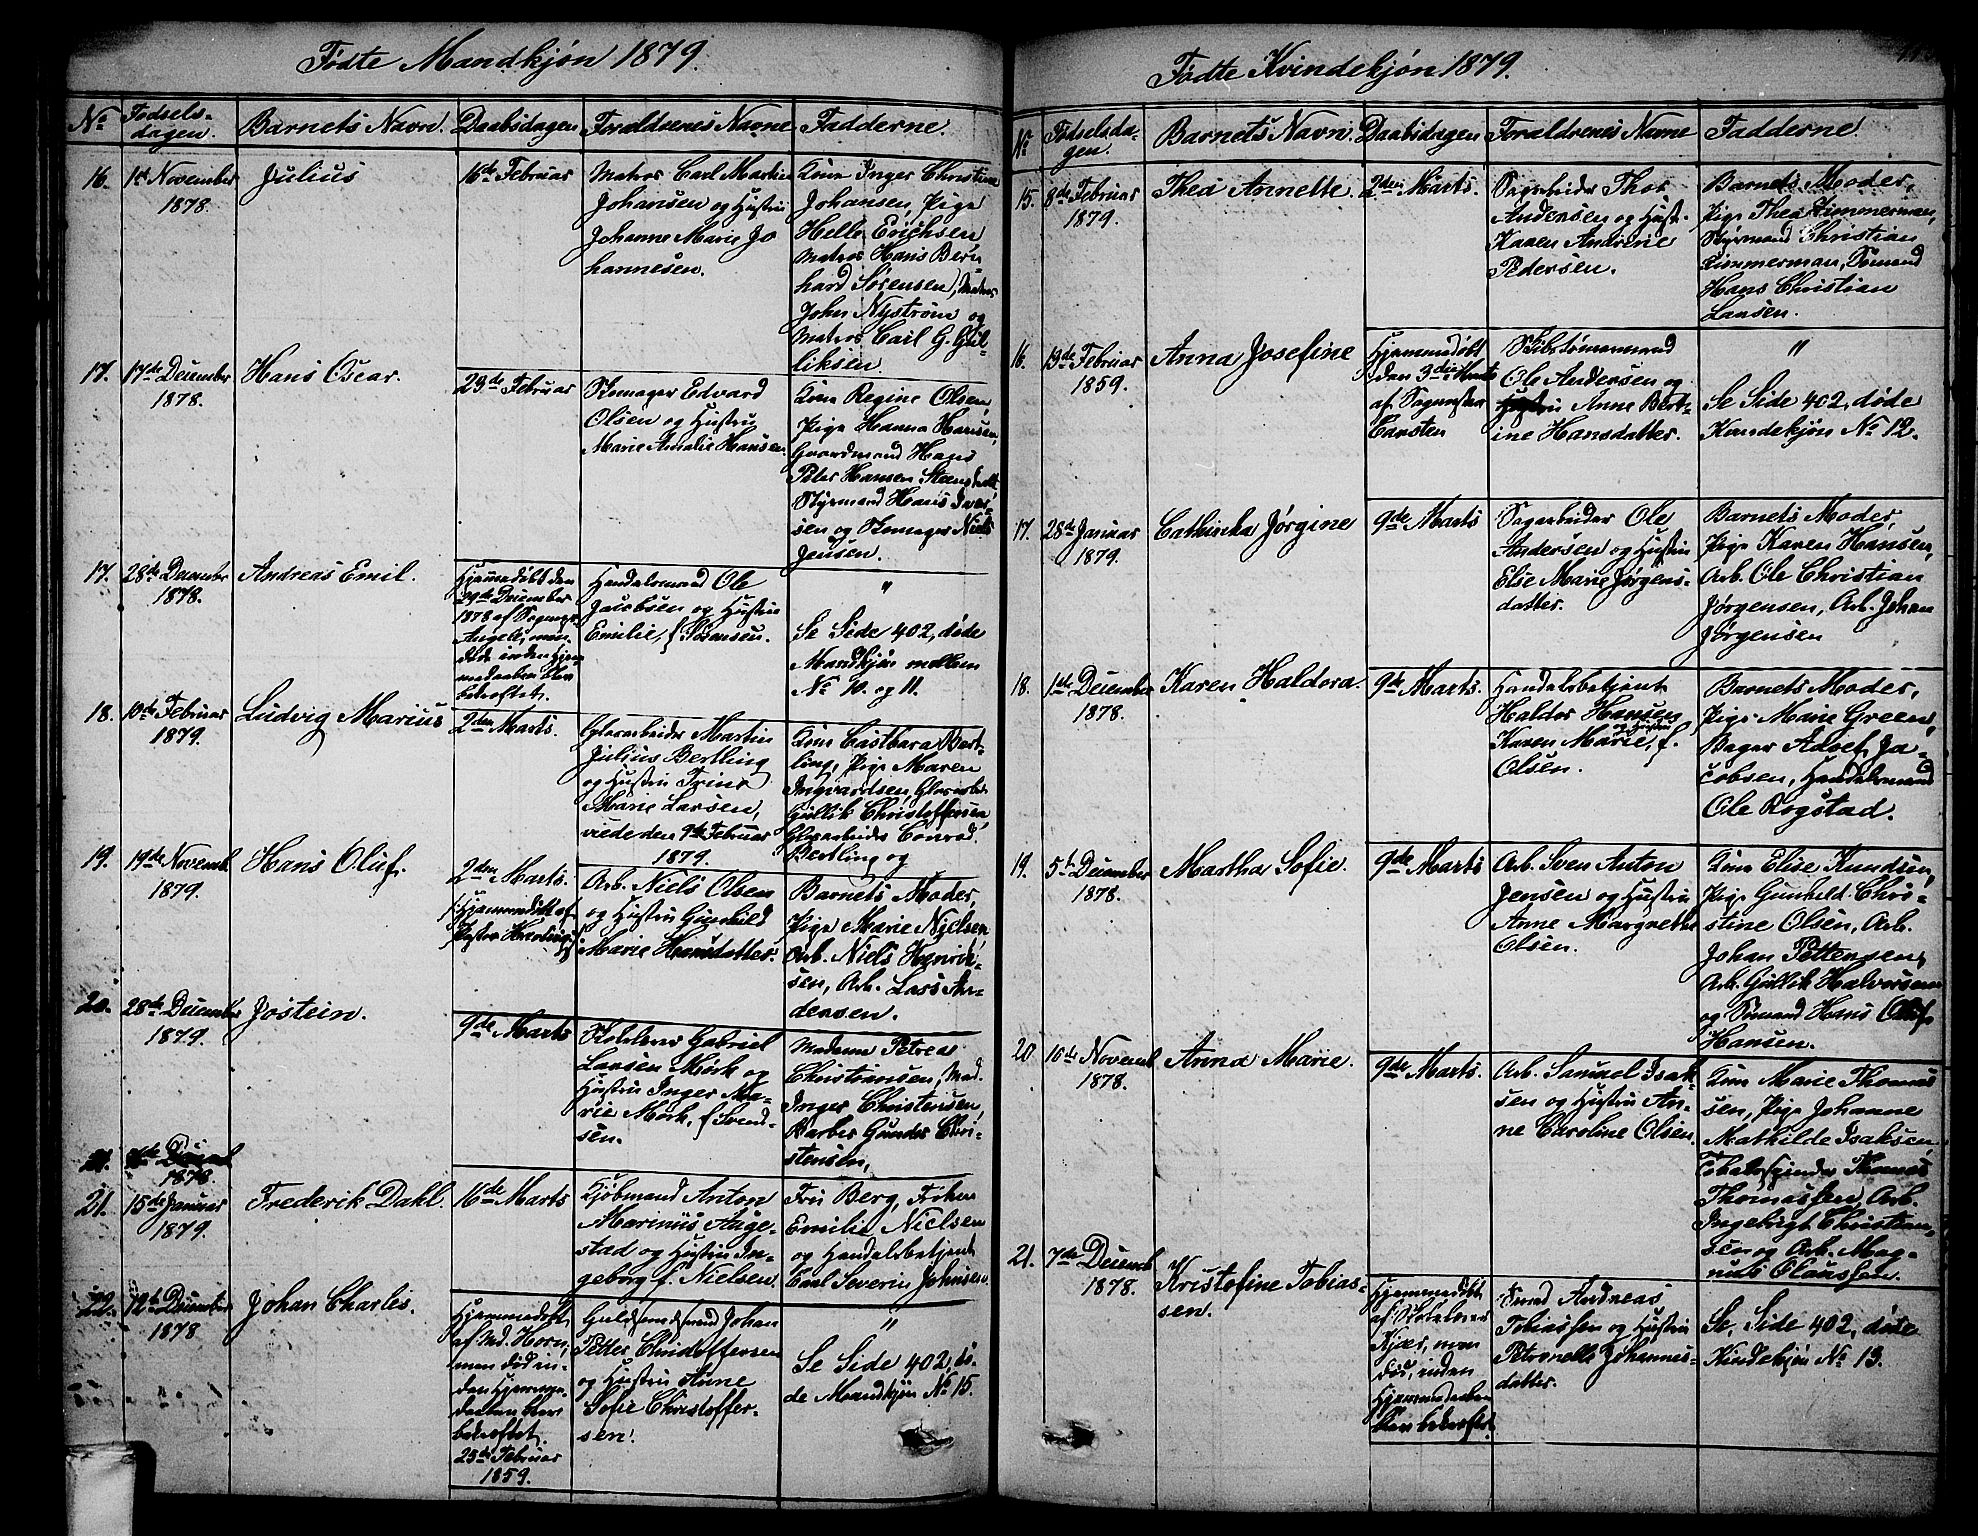 Fødte Mandkjøn 1879.
No
Fødsels-
dagen.
Barnets Navn.
Daabsdagen
Foraldrenes Navne
Fadderne.
16.
1st November
1878.
Julius
16de Februar
Matros Carl Martin
Johansen og Hustru
Johanne Marie Jo
hannesen.
Kone Inger Christine
Johansen, Pige
Helle Erichsen
Matros Hans Bern
hard Sørensen, Matros
John Nystrøm og
Matros Carl G. Gul-
liksen.
17.
17de December
1878.
Hans Oscar.
23de Februar
Skomager Edvard
Olsen og Hustru
Marie Amalie Hansen.
Kone Regine Olsen,
Pige Hanna Hansen,
Gaardmand Hans
Peter Hansen
Styrmand Hans Iver-
sen og Skomager Niels
Jensen.
17.
28de December
1878.
Andreas Emil.
Hjemmedøbt den
29de December
1878 af
Angell, men
døde inden Hjem
medaaben blev
bekræftet.
Handelsmand Ole
Jacobsen og Hustru
Emilie, f. Sørensen.
"
Se Side 402, døde
Mandkjøn mellem
No 10. og 11.
18.
10de Februar
1879.
Ludvig Marius
2den Marts.
Glasarbeider Martin
Julius Bertling
og Hustru Trine
Marie Larsen,
viede den 9de Februar
1879.
Kone Bert-
ling, Pige Maren
Ingvardsen, Glasarbei.
Gullik Christoffersen
Glasarbeider Conrad
Bertling og
19.
19de Novemb.
1879.
Hans Oluf.
2den Marts.
Hjemmedøbt af
Arb. Niels Olsen
og Hustru Gunhild
Marie Hansdatter.
Barnets Moder,
Pige Marie Nielsen
Arb. Niels Henrik-
sen, Arb. Lars An-
dersen.
20.
28de December
1879.
Jøstein.
9de Marts
Gabriel
Larsen Mörk og
Hustru Inger Ma-
rie Mörk, f. Svend-
sen.
Madame Petrea
Christiansen, Mad.
Inger Christensen,
Barber Gunder Chri-
stensen,
21.
1878.
21.
15de Januar
1879.
Frederik Dahl.
16de Marts
Kjøbmand Anton
Marinius Auge-
stad og Hustru In-
geborg f. Nielsen.
Fru Berg, Frøken
Emilie Nielsen
og Handelsbetjent
Carl Severin Johnsen.
22.
12te December
1878
Johan Charles.
Hjemmedøbt
af Md. Horn,
men død in-
den Hjemme-
daaben blev
bekræftet.
25de Februar
1859.
Guldsmedsvend Johan
Petter Christoffersen
og Hustru Anne
Sofie Christoffer-
sen.
"
Se Side 402, dø-
de Mandkjøn No 15.
Fødte Kvindekjøn 1879.
No
Fødselsda-
gen.
Barnets Navn.
Daabsdagen
Foraldrenes Navne
Fadderne
15.
8de Februar
1879.
Thea Annette.
2den Marts.
Sagarbeider Thor
Andersen og Hust.
Karen Andrine
Pedersen.
Barnets Moder,
Pige Thea Zimmerman,
Styrmand Christian
Zimmerman, Sømand
Hans Christian
Larsen.
16.
13de Februar
1859.
Anna Josefine
Hjemmedøbt
den 3die Marts
af
Carsten
Skibstømmermand
Ole Andersen og
Hustru Anne Bert-
ine Hansdatter.
"
Se Side 402, døde
Kvindekjøn No 12.
17.
28de Januar
1879.
Cathinka Jørgine
9de Marts
Sagarbeider Ole
Andersen og Hustru
Else Marie Jørgens-
datter.
Barnets Moder,
Pige Karen Hansen,
Arb. Ole Christian
Jørgensen, Arb. Johan
Jørgensen
18.
1ste December
1878.
Karen Haldora.
9de Marts.
Handelsbetjent
Haldor Hansen
og Hustru
Karen Marie, f.
Olsen.
Barnets Moder,
Pige Marie Green,
Bager Adolf Ja-
cobsen, Handelsmand
Ole Rogstad.
19.
5te December
1878.
Martha Sofie.
9de Marts
Arb. Sven Anton
Jensen og Hustru
Anne Margrethe
Olsen.
Kone Elise Knudsen,
Pige Gunhild Chri-
stine Olsen, Arb.
Johan Pettersen,
Arb. Gullik Halvorsen
og Sømand Hans Oluf
Hansen.
20.
10de Novemb.
1878.
Anna Marie.
9de Marts.
Arb. Samuel Isak-
sen og Hustru An-
ne Caroline Olsen.
Kone Marie Thomas
sen, Pige Johanne
Mathilde Isaksen,
Tobaksspinder Thomas
Thomassen, Arb.
Ingebrigt Christian-
sen og Arb. Mag-
nus Olaussen.
21.
7de Decemb.
1878.
Kristofine Tobias-
sen.
Hjemmedøbt
af
Kjær, men
død, inden
Hjemmedaaben
blev bekræftet.
Svend Andreas
Tobiassen og Hustru
Petronelle Johannes-
datter.
Se, Side 402, døde
Kvindekjøn No 13.